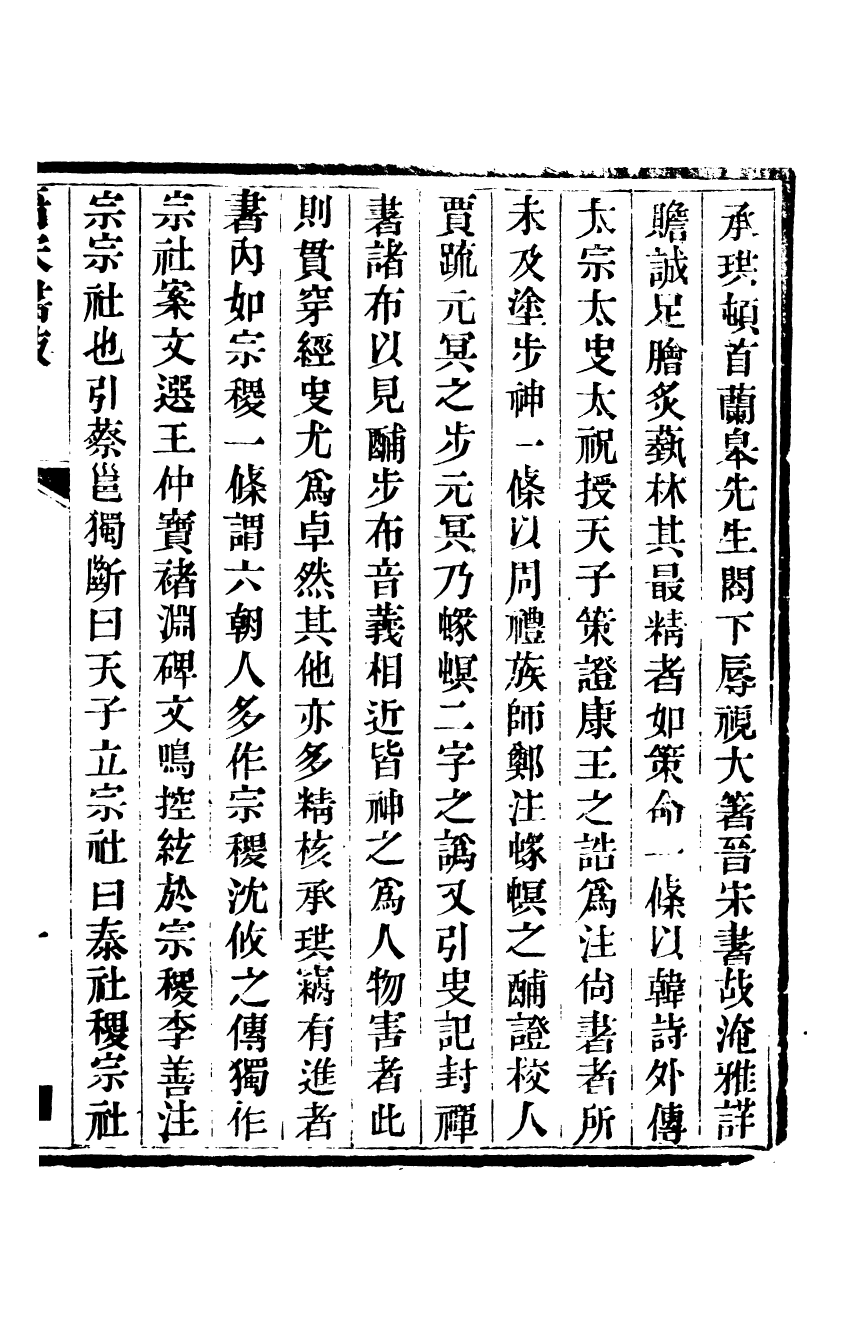 承珙頓首蘭皋先生閣下辱視大箸晉宋書故淹雅詳
贍誠足膾炙藝林其最精者如策命一條以韓詩外傳
太宗太史太祝授天子策證康王之誥爲注尙書者所
未及塗步神一條以周禮族師鄭注蝝螟之酺證校人
賈疏元冥之步元冥乃蝝螟二字之譌又引史記封禪
書諸布以見酺步布音義相近皆神之爲人物害者此
則貫穿經史尤爲卓然其他亦多精核承珙竊有進者
書內如宗稷一條謂六朝人多作宗稷沈攸之傳獨作
宗社案文選王仲寶褚淵碑文鳴控絃於宗稷李善注
宗宗社也引蔡邕獨斷曰天子立宗社曰泰社稷宗社
晉宋書故
一